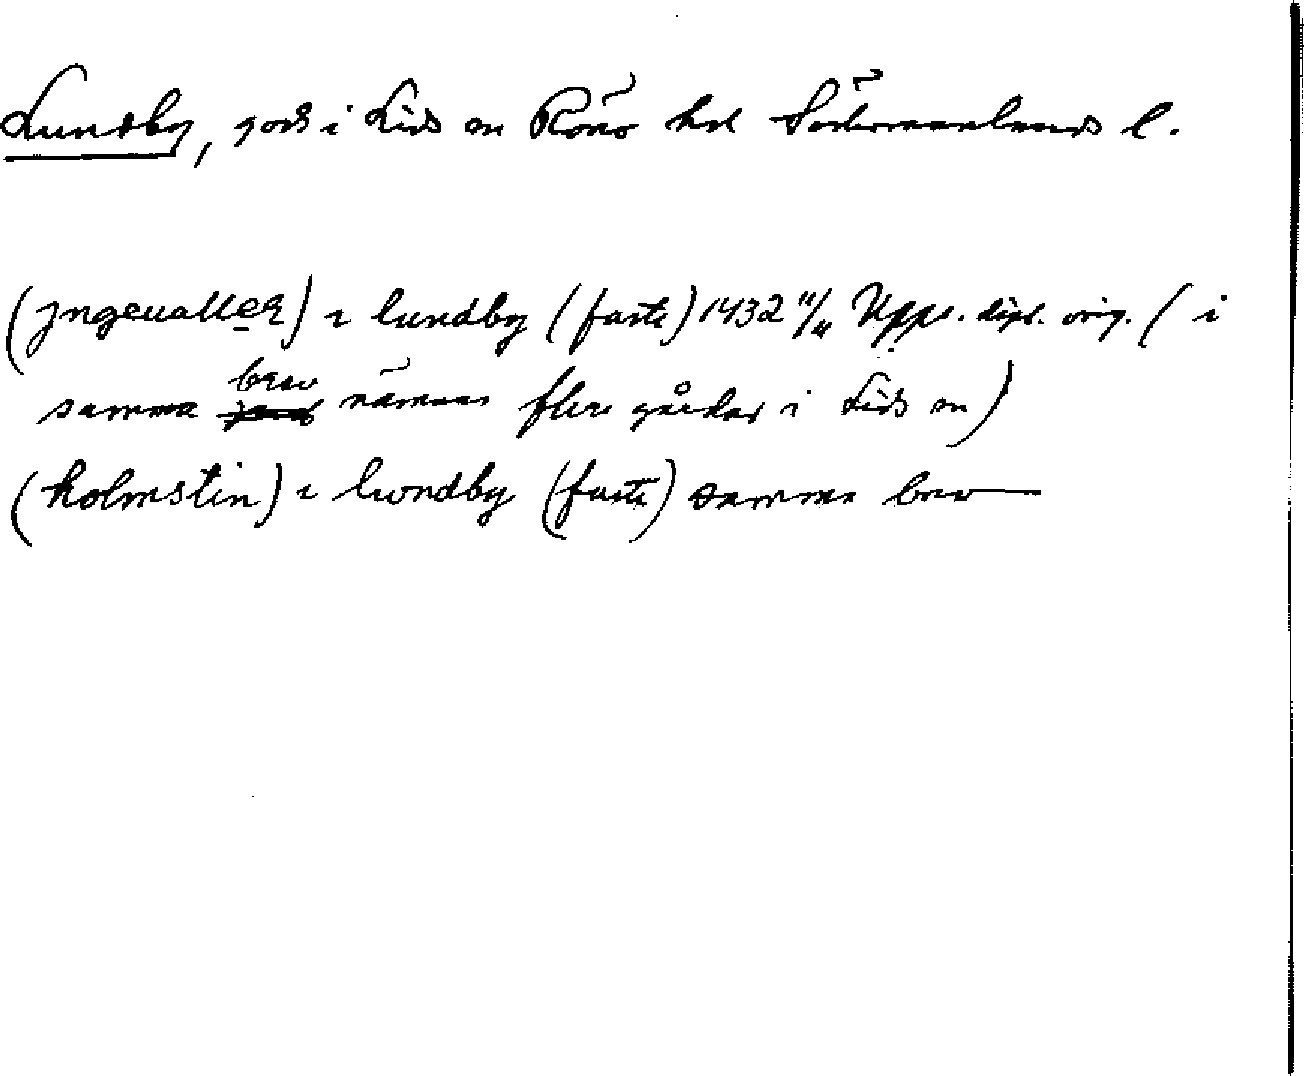 Lundby, gods i Lids sn Rönö hd Södermanlands l.
(jngeualler) i lundby (faste) 1432 11/11 Upps. dipl. orig. ( i
samma brev nämnas flere gårdar i Lids sn)
(holmstin) i lwndby (faste) samma brev